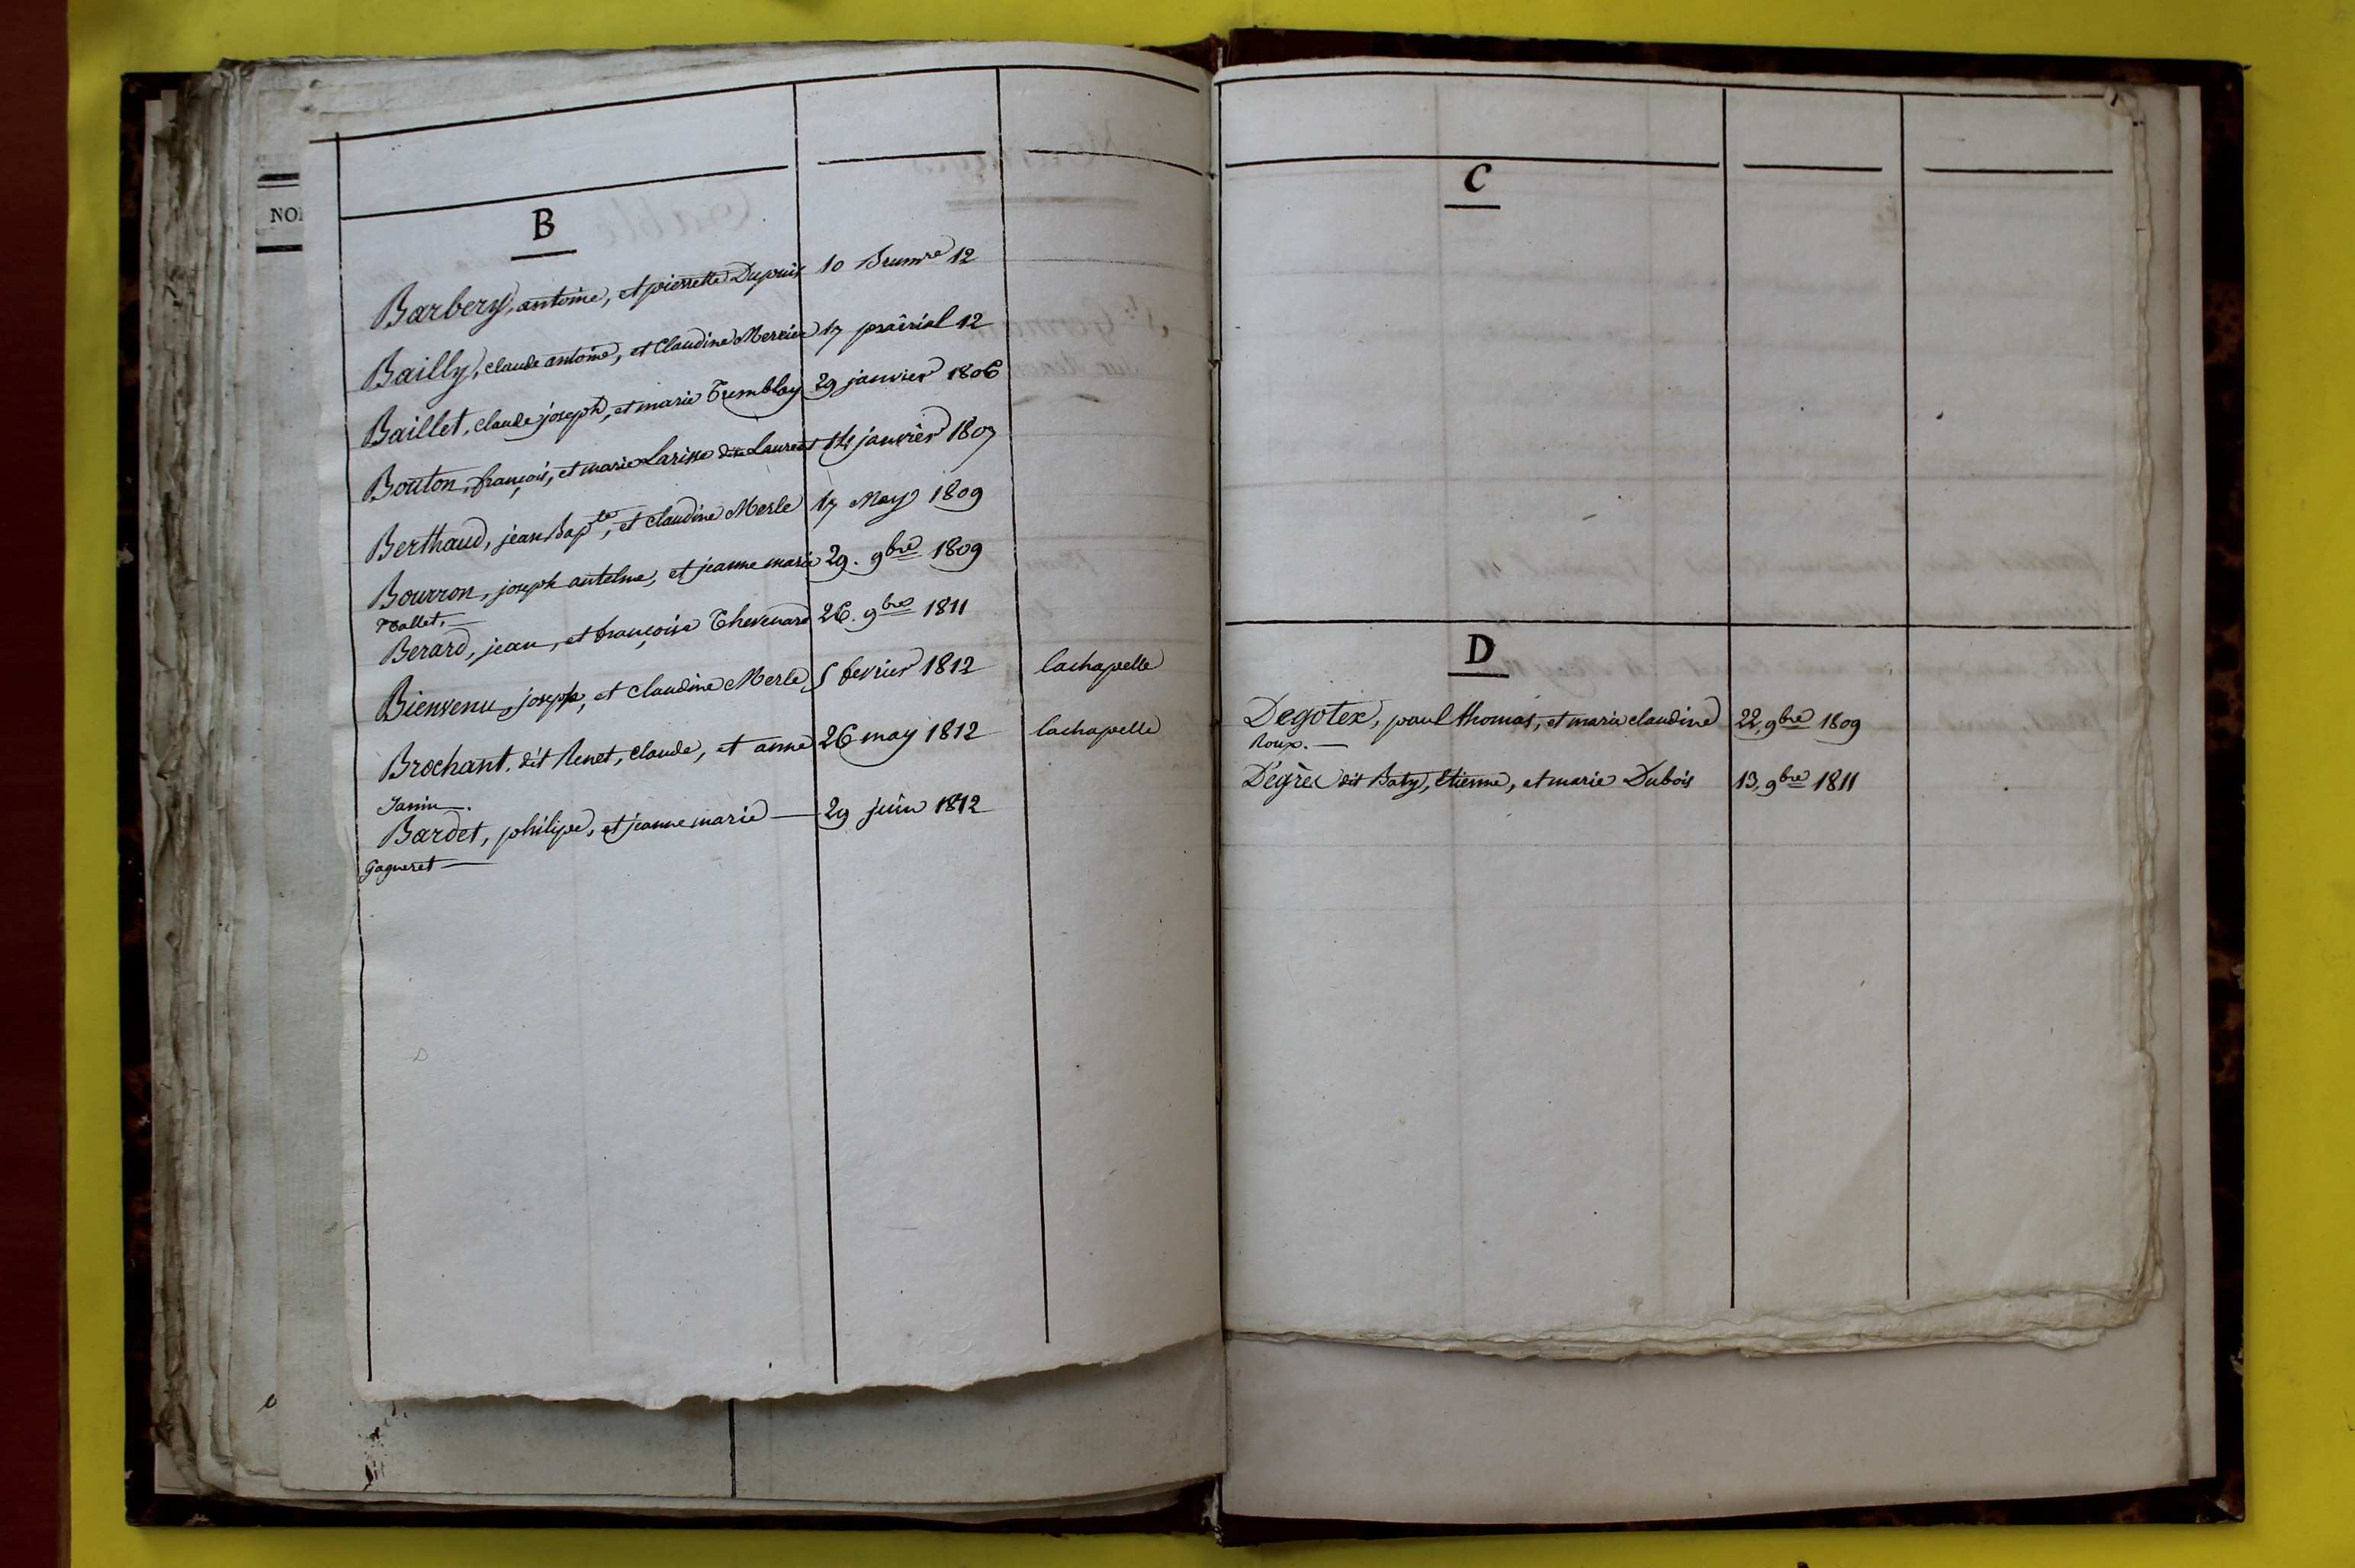 NO
B
Barbery, antoine, et pierrette Dupuis 10 Brumre 12
Bailly, claude antoine, et Claudine Mercier 17 prairial 12
Baillet, claude joseph, et marie Tremblay 29 janvier 1806
Bouton, françois, et marie Larisse dite Laurent 14 janvier 1807
Berthaud, jean Bapte, et claudine Merle 17 May 1809
Bourron, joseph antelme, et jeanne marie 29. 9bre 1809
Mallet,
Berard, jean, et françoise Thevenard 26. 9bre 1811
Bienvenu, joseph, et claudine Merle 5 fevrier 1812 lachapelle
Brochant, dit Renet, claude, et anne 26 may 1812 lachapelle
Janin.
Bardet, philipe, et jeanne marie 29 juin 1812
Gagneret
C
D
Degotex, paul thomas, et marie claudine 22, 9bre 1809
Roux.
Dégre dit Baty, Etienne, et marie Dubois 13, 9bre 1811